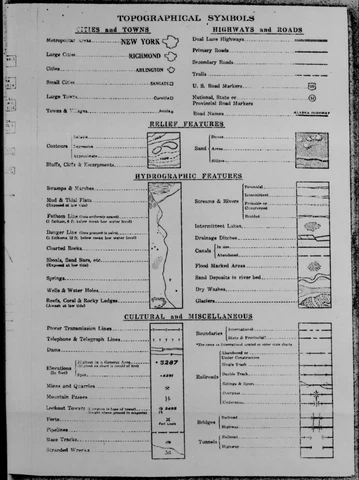 TOPOGRAPHICAL SYMBOLS
CITIES and TOWNS
Metropolitan Areas NEW YORK
Large Cities RICHMOND
Cities ARLINGTON
Small Cities
Large Towns
Towns & Villages
HIGHWAYS and ROADS
Dual Lane Highways
Primary Roads
Secondary Roads
Trails
U. S. Road Markers
National, State or
Provincial Road Markers
Road Names ALASKA HIGHWAY
RELIEF FEATURES
Contours
Depression
Approximate
Bluffs, Cliffs & Escarpments
Sand
Areas
Dunes
HYDROGRAPHIC FEATURES
Swamps & Marshes
Mud & Tidal Flats
(Exposed at low tide)
Fathom Line
Danger Line
Charted Rocks
Shoals, Sand Bars, etc.
(Exposed at low tide)
Springs
Wells & Water Holes
Reefs, Coral & Rocky Ledges
(Awash at low tide)
Streams & Rivers
Perennial
Intermittent
Probable or
Unsurveyed
Braided
Intermittent Lakes
Drainage Ditches
Canals
In use
Abandoned
Flood Marked Areas
Sand Deposits in river bed
Dry Washes
Glaciers
CULTURAL and MISCELLANEOUS
Power Transmission Lines
Telephone & Telegraph Lines
Dams
Elevations
(In Feet)
(Highest in a General Area) 3287
Spot
Mines and Quarries
Mountain Passes
Lookout Tower
Forts
Pipelines
Race Tracks
Stranded Wrecks
Boundaries
International
State & Provincial
Railroads
Abandoned or
Under Construction
Single Track
Double Track
Sidings & Spurs
Overpass
Underpass
Bridges
Railroad
Highway
Tunnels
Railroad
Highway